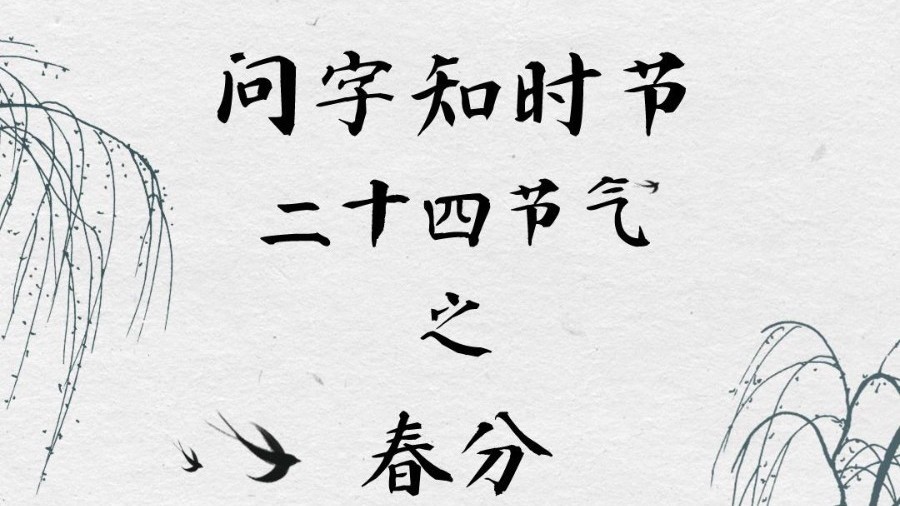 问字知时节
二十四节气
之
春分